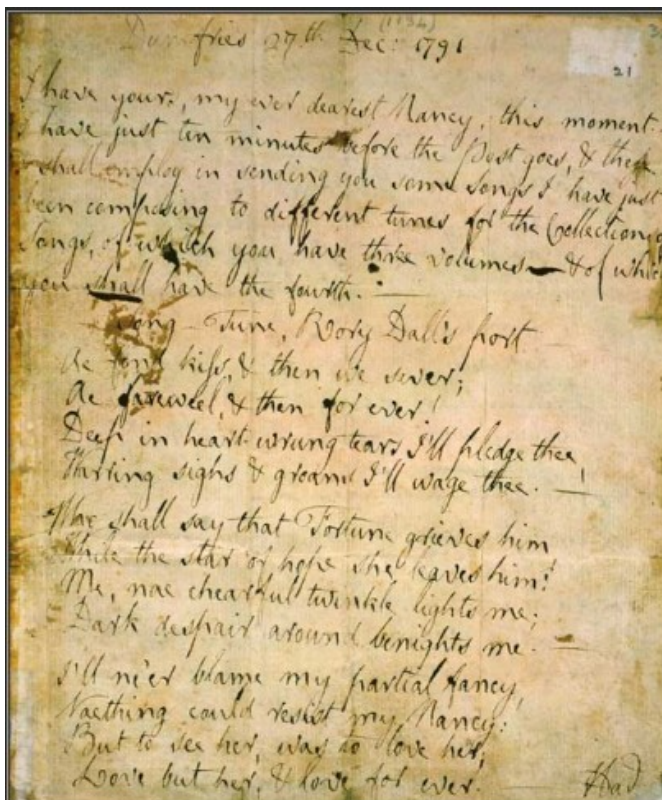 (1134)
Dumfries 27th Dec: 1791
21
I have yours, my ever dearest Nancy, this moment.
I have just ten minutes before the Post goes, & these
I shall employ in sending you some Songs I have just
been composing to different tunes for the Collection of
Songs, of which you have three volumes — & of which
you shall have the fourth. —
Song — Tune, Rory Dall's port
Ae fond kiss, & then we sever;
Ae fareweel, & then for ever!
Deep in heart-wrung tears I'll pledge thee,
Warring sighs & groans I'll wage thee. —
Wha shall say that Fortune grieves him
While the star of hope she leaves him:
Me, nae chearful twinkle lights me;
Dark despair around benights me. —
I'll ne'er blame my partial fancy,
Naething could resist my Nancy:
But to see her, was to love her;
Love but her, & love for ever. —
Had